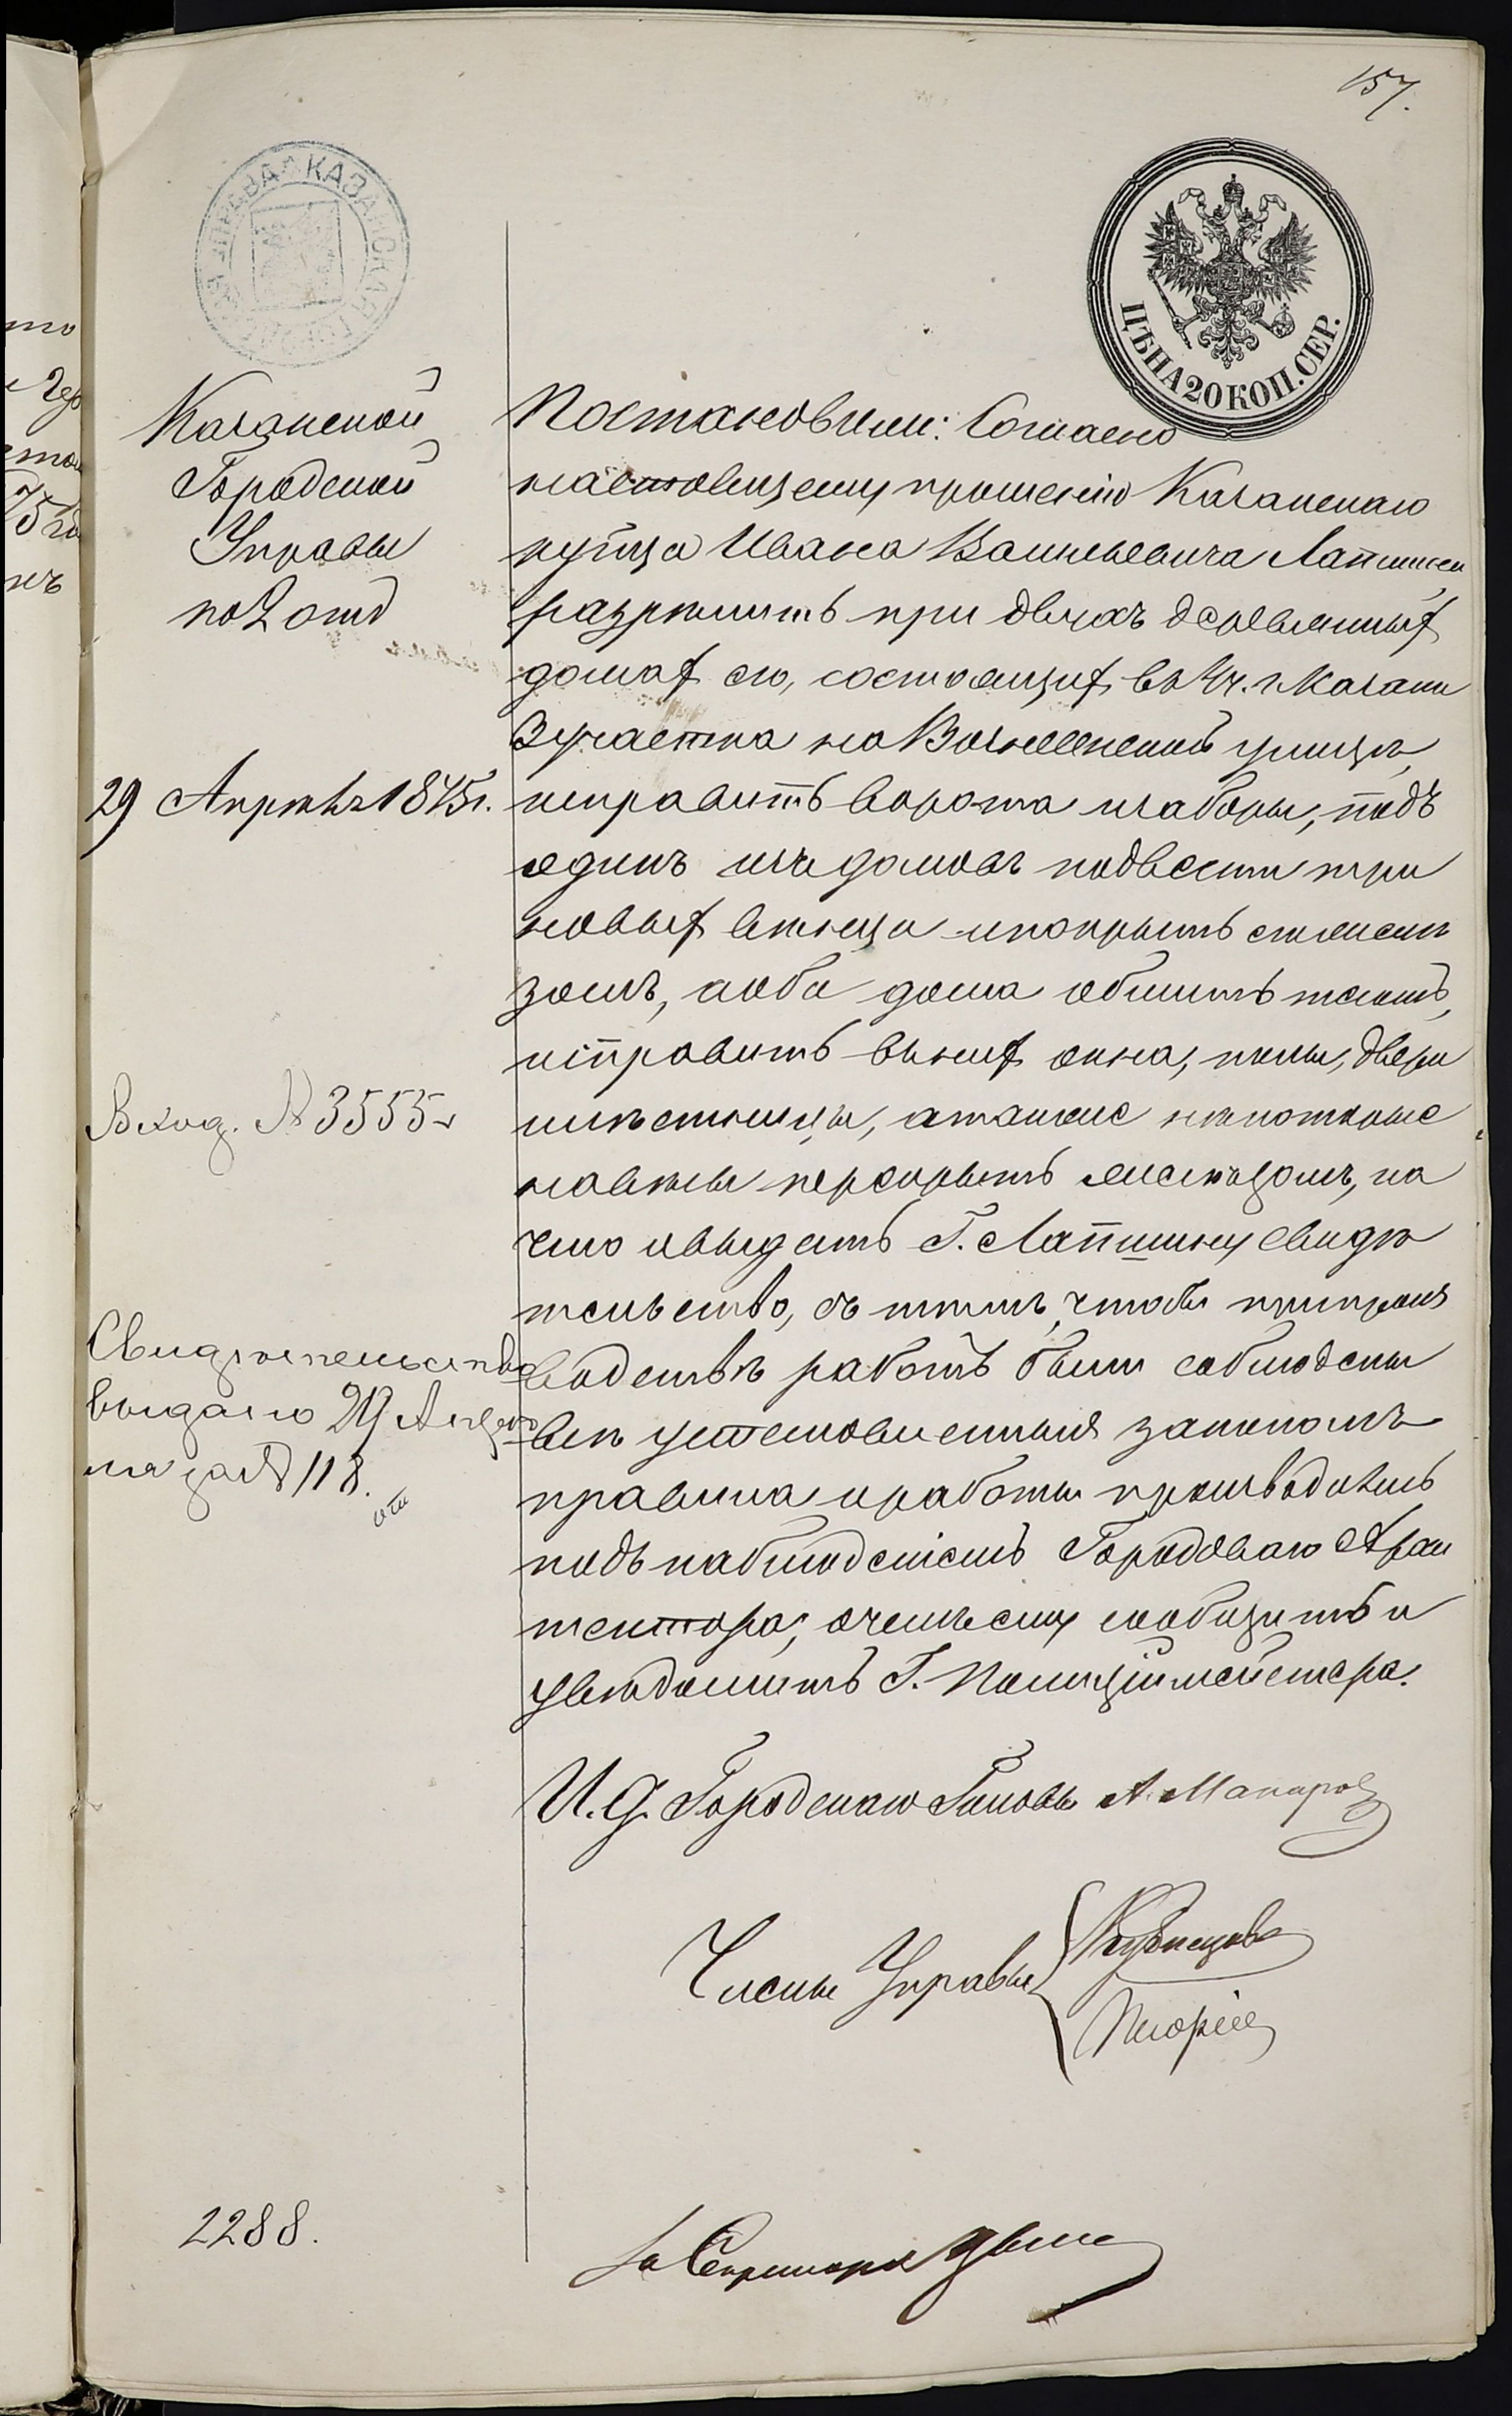 157.
КАЗАНСКАЯ ГОРОДСКАЯ УПРАВА
ЦѢНА 20 КОП. СЕР.
Казанской
Городской
Управы
по 2 отд
29 Апрѣля 1875 г.
Вход. № 3555
Свидѣтельство
выдано 29 Апрѣ
ля за № 118.
2288.
Постановили: Согласно
настоящему прошенію Казанскаго
купца Ивана Васильевича Лапшина
разрѣшить при двухъ деревянныхъ
домахъ его, состоящихъ в 4 ч. г. Казани
3 участка на Вознесенской улицѣ,
исправить ворота и заборы, подъ
одинъ изъ домовъ подвести три
новыхъ вѣнца и покрыть его желѣ
зомъ, а оба дома обшить тесомъ,
исправить въ нихъ окна, полы, двери
и лѣстницы, а также
навѣсы перекрыть желѣзомъ, на
что и выдать Г. Лапшину свидѣ
тельство, съ тѣмъ, чтобы при произ
водствѣ работъ были соблюдены
всѣ установленныя закономъ
правила и работы производились
подъ наблюденіемъ Городоваго Архи
тектора, о чемъ ему сообщить и
увѣдомить Г. Полиціймейстера.
И. д. Городскаго Головы А. Макаров
Члены Управы
За Секретаря